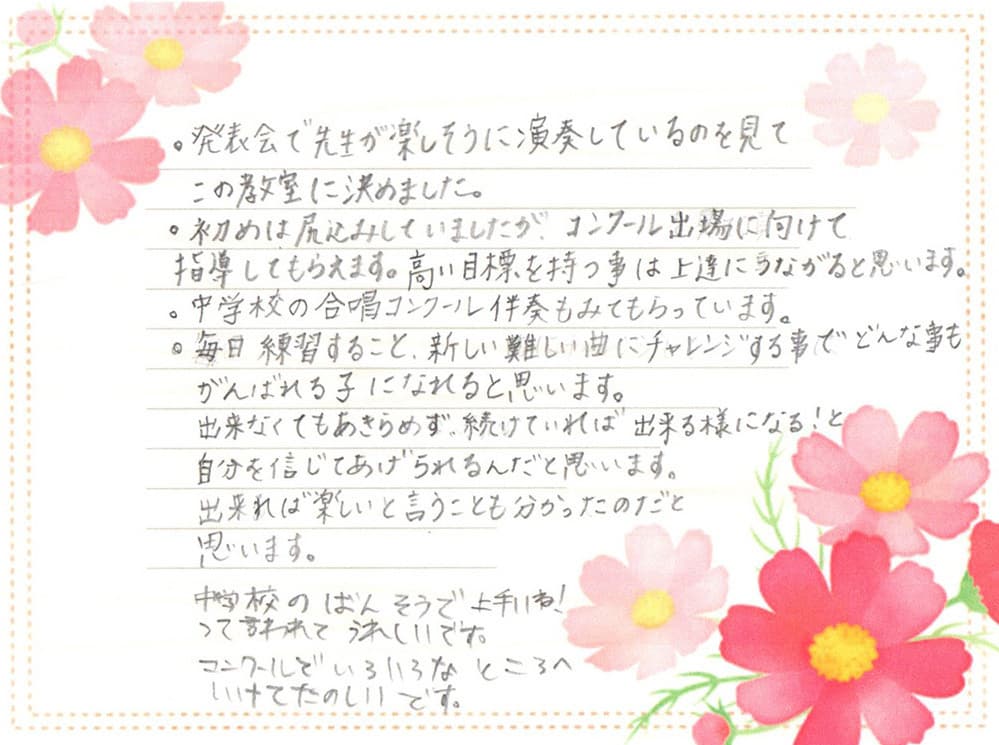 。発表会で先生が楽しそうに演奏しているのを見て
この教室に決めました。
。初めは尻込みしていましたが、コンクール出場に向けて
指導してもらえます。高い目標を持つ事は上達にうながると思います。
。中学校の合唱コンクール伴奏もみてもらっています。
。毎日練習すること、新しい難しい曲にチャレンジする事でどんな事も
がんばれる子になれると思います。
出来なくてもあきらめず、続けていれば出来る様になる！と
自分を信じてあげられるんだと思います。
出来れば楽しいと言うことも分かったのだと
思います。
中学校のばんそうで上手いね！
って言われてうれしいです。
コンクールでいろいろなところへ
いけてたのしいです。